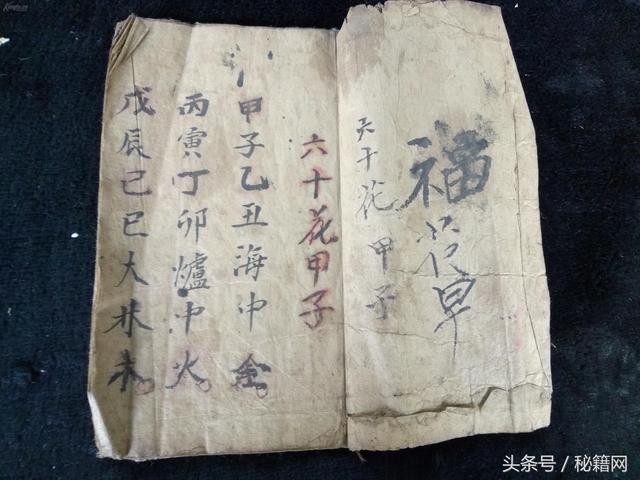 福
六十花甲子
六十花甲子
甲子乙丑海中金
丙寅丁卯爐中火
戊辰己巳大林木
头条号／秘籍网